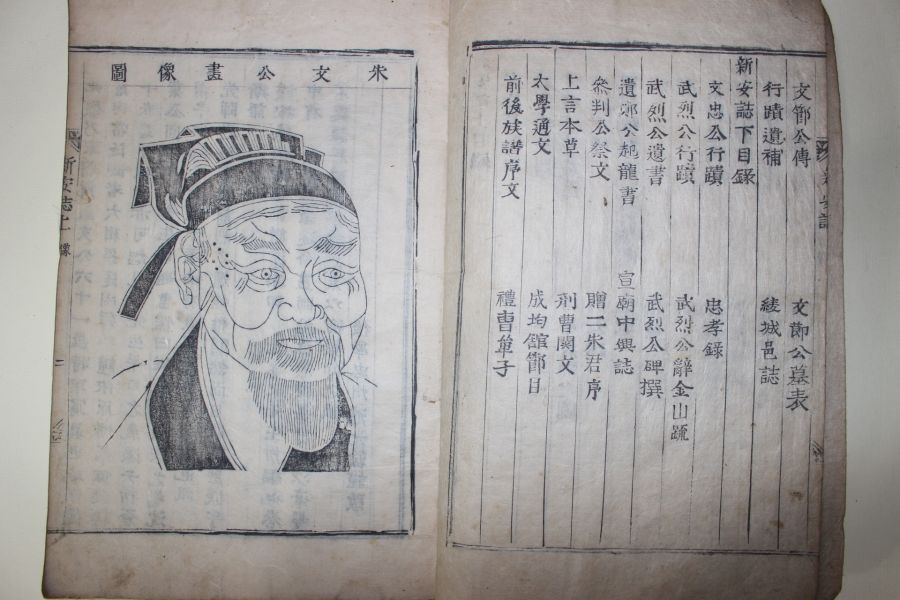 文節公傳 文節公墓表
行蹟遺補 綾城邑誌
新安誌下目録
文忠公行蹟 忠孝録
武烈公行蹟 武烈公辭金山䟽
武烈公遺書 武烈公碑撰
遺鄭公起龍書 宣廟中興誌
叅判公祭文 贈二朱君序
上言本草 刑曹関文
太學通文 成均舘節目
前後族譜序文 禮曹單子
朱文公畫像圖
新安誌上 像 二